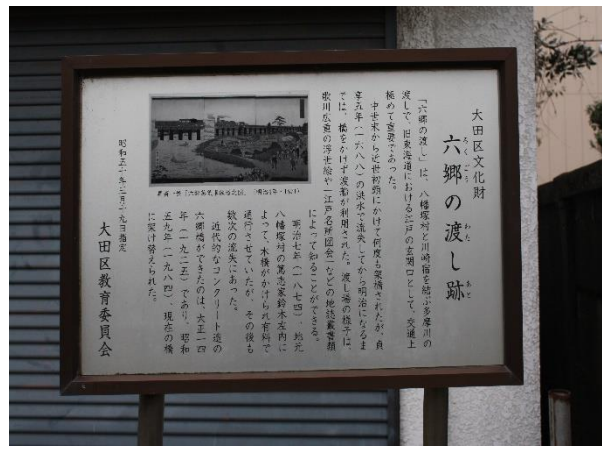 大田区文化財
六郷の渡し跡
ろくごう わた あと
「六郷の渡し」は、八幡塚村と川崎宿を結ぶ多摩川の
渡しで、旧東海道における江戸の玄関口として、交通上
極めて重要であった。
中世末から近世初頭にかけて何度も架橋されたが、貞
享五年（一六八八）の洪水で流失してから明治になるま
では、橋をかけず渡船が利用された。渡し場の様子は、
歌川広重の浮世絵や「江戸名所図会」などの地誌叢書類
によって知ることができる。
明治七年（一八七四）、地元
八幡塚村の篤志家鈴木左内に
よって、木橋がかけられ有料で
通行させていたが、その後も
数次の流失にあった。
近代的なコンクリート造の
六郷橋ができたのは、大正一四
年（一九二五）であり、昭和
五九年（一九八四）、現在の橋
に架け替えられた。
昭和五十年三月十九日指定
大田区教育委員会